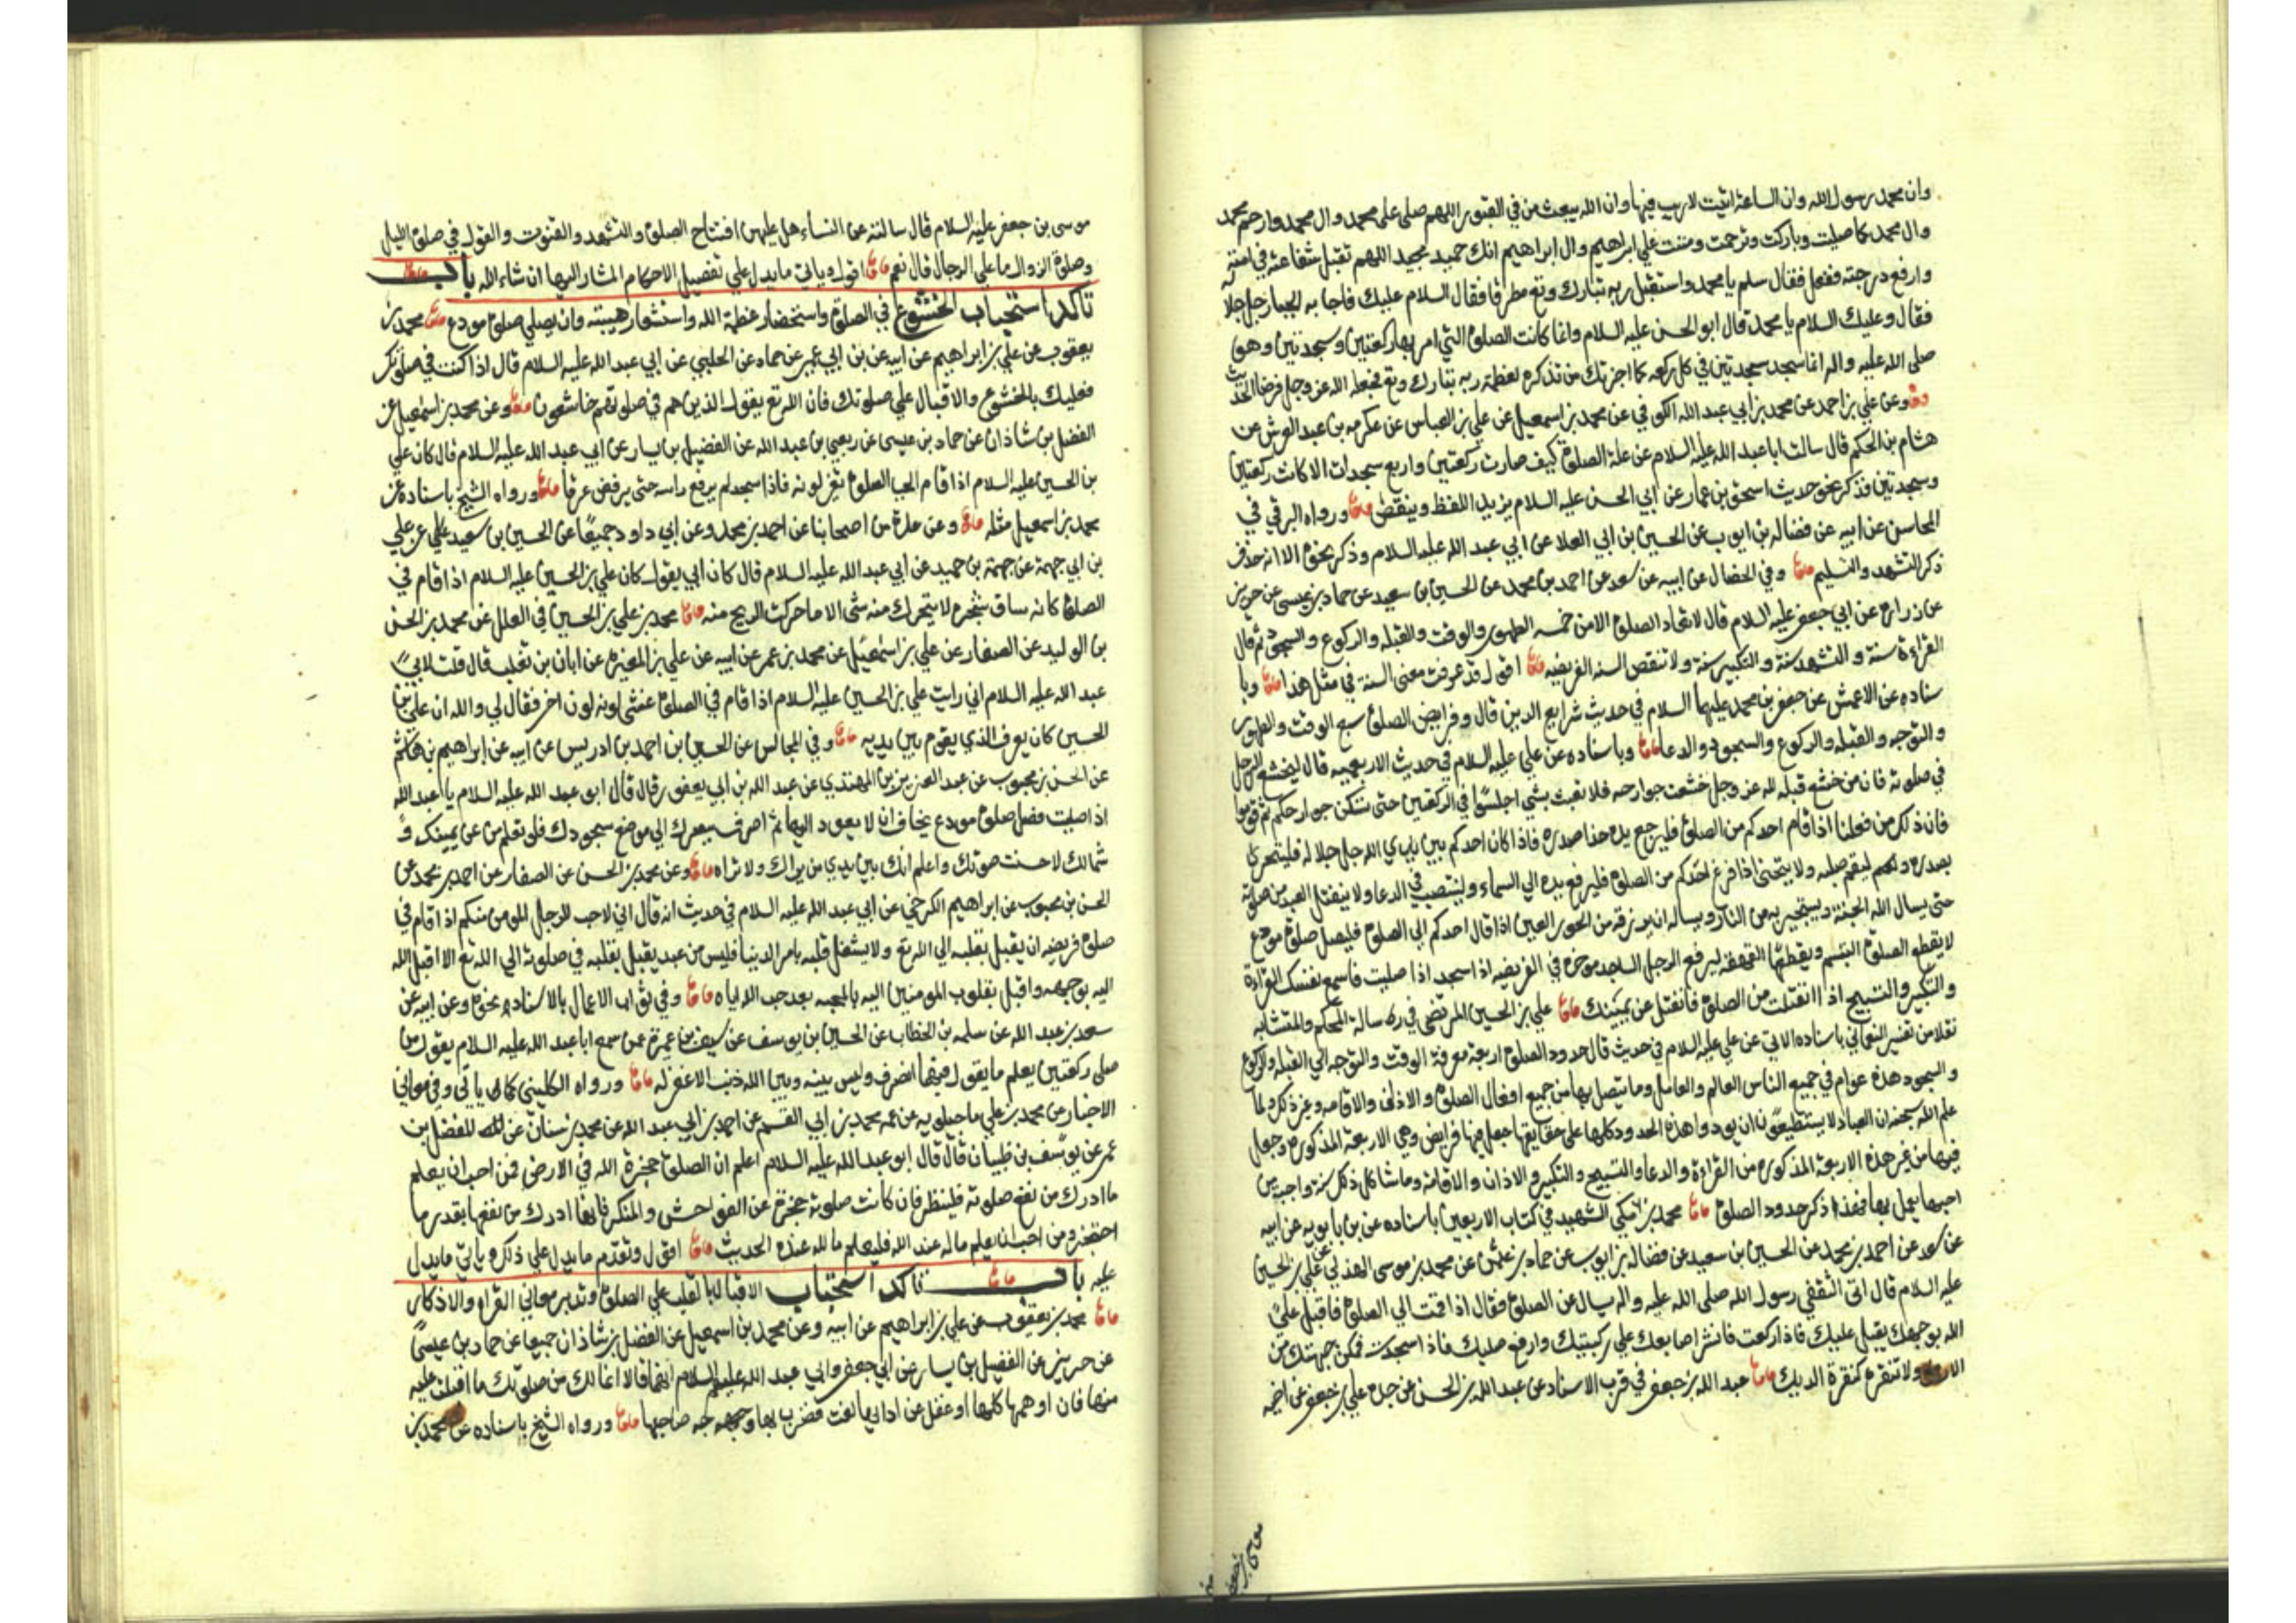 وان محمد رسول الله وان الساعة اتيت لاريب فيها وان الله يبعث من في القبور اللهم صلى على محمد وال محمد وارحم محمد
وال محمد كما صليت وباركت وترحمت ومننت علي ابراهيم وال ابراهيم انك حميد مجيد اللهم تقبل شفاعته في امته
وارفع درجته ففعل فقال سلم يا محمد واستقبل ربه تبارك وتع مطرقا فقال السلام عليك فاجابه الجبار جل جلا له
فقال وعليك السلام يا محمد قال ابو الحسن عليه السلام وانما كانت الصلوة التي امر بها ركعتين وسجدتين وهو
صلى الله عليه واله انما سجد سجدتين في كل ركعه كما اخبرتك من تذكره لعظمة ربه تبارك وتع فجعله الله عز وجل فرضا الحديث
وعن علي بن احمد عن محمد بن ابي عبد الله الكوفي عن محمد بن اسمعيل عن علي بن العباس عن عكرمه بن عبد العرش عن
هشام بن الحكم قال سالت ابا عبد الله عليه السلام عن علة الصلوة كيف صارت ركعتين واربع سجدات الا كانت ركعتين
وسجدتين فذكر نحو حديث اسحق بن عمار عن ابي الحسن عليه السلام يزيد اللفظ وينقص ورواه البرقي في
المحاسن عن ابيه عن فضاله بن ايوب عن الحسين بن ابي العلا عن ابي عبد الله عليه السلام وذكر نحوه الا انه حذف
ذكر التشهد والتسليم وفي الخصال عن ابيه عن سعد عن احمد بن محمد عن الحسين بن سعيد عن حماد بن عيسى عن حريز
عن زرارة عن ابي جعفر عليه السلام قال لا تعاد الصلوة الا من خمسه الطهور والوقت والقبله والركوع والسجود ثم قال
القراءة سنة والتشهد سنة والتكبير سنة ولا تنقص السنه الفريضه اقول قد عرفت معنى السنة في مثل هذا وبا
سناده عن الاعمش عن جعفر بن محمد عليهما السلام في حديث شرايع الدين قال وفرايض الصلوة سبع الوقت والطهور
والتوجه والقبله والركوع والسجود والدعا وباسناده عن علي عليه السلام في حديث الاربعمايه قال ليخشع الرجل
في صلوته فان من خشع قبله لله عز وجل خشعت جوارحه فلا تعبث بشي اجلسوا في الركعتين حتى تسكن جوارحكم ثم قوموا
فان ذلك من فعلنا اذا قام احدكم من الصلوة فليرجع يده حذا صدره فاذا كان احدكم بين يدي الله جل جلا له فليتحرى
بصدره وليقم صلبه ولا ينحني اذا فرغ احدكم من الصلوة فليرفع يده الي السماء ولينتصب في الدعا ولا ينفتل العبد من صلوته
حتى يسال الله الجنة ويستجير به من النار ويساله ان يزوجه من الحور العين اذا قال احدكم الى الصلوة فليصل صلوة مودع
لا يقطع الصلوة التبسم ويقطعها القهقهه ليرفع الرجل الساجد موخره في الفريضه اذا سجد اذا صليت فاسمع نفسك القراءة
والتكبير والتسبيح اذا انفتلت من الصلوة فانفتل عن يمينك علي بن الحسين المرتضى في رسالة المحكم والمتشابه
نقلا من تفسير النعماني باسناده الاتي عن علي عليه السلام في حديث قال حدود الصلوة اربعة معرفة الوقت والتوجه الي القبله والركوع
والسجود هذه عوام في جميع الناس العالم والعامل وما يتصل بها من جميع افعال الصلوة والاذان والاقامه وغير ذلك ولما
علم الله سبحنه ان العباد لا يستطيعون ان يودوا هذه الحدود كلها على حقايقها جعل فيها فرايض وهي الاربعة المذكوره وجعل
فيها من غير هذه الاربعة المذكوره من القراءة والدعا والتسبيح والتكبير والاذان والاقامة وما شاكل ذلك سنة واجبه من
احبها يعمل بها فهذا ذكر حدود الصلوة محمد بن مكي الشهيد في كتاب الاربعين باسناده عن بن بابويه عن ابيه
عن سعد عن احمد بن محمد عن الحسين بن سعيد عن فضاله بن ايوب عن حماد بن عثمن عن محمد بن موسى الهذلي عن علي بن الحسين
عليه السلام قال اتى الثقفي رسول الله صلى الله عليه واله يسال عن الصلوة فقال اذا قمت الي الصلوة فاقبل علي
الله بوجهك يقبل عليك فاذا ركعت فانشر اصابعك علي ركبتيك وارفع صلبك فاذا سجدت فمكن جبهتك من
الارض ولا تنقره كنقرة الديك عبد الله بن جعفر في قرب الاسناد عن عبد الله بن الحسن عن جده علي بن جعفر عن اخيه
موسى بن جعفر عليه السلام قال سالته عن النساء هل عليهن افتتاح الصلوة والتشهد والقنوت والقول في صلوة الليل
وصلوة الزوال ما على الرجال قال نعم اقول وياتي ما يدل علي تفصيل الاحكام المشار اليها ان شاء الله باب
تاكد استحباب الخشوع في الصلوة واستحضار عظمة الله واستشعار هيبته وان يصلي صلوة مودع محمد بن
يعقوب عن علي بن ابراهيم عن ابيه عن بن ابي عمير عن حماد عن الحلبي عن ابي عبد الله عليه السلام قال اذا كنت في صلوتك
فعليك بالخشوع والاقبال علي صلوتك فان الله تع يقول الذين هم في صلوتهم خاشعون وعن محمد بن اسمعيل عن
الفضل بن شاذان عن حماد بن عيسى عن ربعي بن عبد الله عن الفضيل بن يسار عن ابي عبد الله عليه السلام قال كان علي
بن الحسين عليه السلام اذا قام الى الصلوة تغير لونه فاذا سجد لم يرفع راسه حتى يرفض عرقا ورواه الشيخ باسناده عن
محمد بن اسمعيل مثله وعن عدة من اصحابنا عن احمد بن محمد وعن ابي داود جميعا عن الحسين بن سعيد عن علي
بن ابي جهمة عن جهمة بن حميد عن ابي عبد الله عليه السلام قال كان ابي يقول كان علي بن الحسين عليه السلام اذا قام في
الصلوة كانه ساق شجره لا يتحرك منه شئ الا ما حركت الريح منه محمد بن علي بن الحسين في العلل عن محمد بن الحسن
بن الوليد عن الصفار عن علي بن اسمعيل عن محمد بن عمر عن ابيه عن علي بن المغيره عن ابان بن تغلب قال قلت لابي
عبد الله عليه السلام اني رايت علي بن الحسين عليه السلام اذا قام في الصلوة غشى لونه لون اخر فقال لي والله ان علي بن
الحسين كان يعرف الذي يقوم بين يديه وفي المجالس عن الحسين بن احمد بن ادريس عن ابيه عن ابراهيم بن هاشم
عن الحسن بن محبوب عن عبد العزيز عن عبد الله بن ابي يعفور قال قال ابو عبد الله عليه السلام يا عبد الله
اذا صليت فصل صلوة مودع يخاف ان لا يعود اليها ثم اصرف ببصرك الي موضع سجودك فلو تعلم من عن يمينك و
شمالك لاحسنت صوتك واعلم انك بين يدي من يراك ولا تراه وعن محمد بن الحسن عن الصفار عن احمد بن محمد عن
الحسن بن محبوب عن ابراهيم الكرخي عن ابي عبد الله عليه السلام في حديث انه قال اني لاحب للرجل المومن منكم اذا قام في
صلوة فريضه ان يقبل بقلبه الي الله تع ولا يشغل قلبه بامر الدينا فليس من عبد يقبل بقلبه في صلوته الي الله تع الا اقبل الله
اليه بوجهه واقبل بقلوب المومنين اليه بالمحبه بعد حب الله اياه وفي ثواب الاعمال بالاسناد نحوه وعن ابيه عن
سعد بن عبد الله عن سلمه بن الخطاب عن الحسين بن يوسف عن سيف بن عميرة عمن سمع ابا عبد الله عليه السلام يقول من
صلى ركعتين يعلم ما يقول فيهما انصرف وليس بينه وبين الله ذنب الا غفر له ورواه الكليني كما ياتي وفي معاني
الاخبار عن محمد بن علي ماجيلويه عن عمه محمد بن ابي القسم عن احمد بن ابي عبد الله عن محمد بن سنان عن المفضل بن
عمر عن يوسف بن ظبيان قال قال ابو عبد الله عليه السلام اعلم ان الصلوة حجزة الله في الارض فمن احب ان يعلم
ما ادرك من نفع صلوته فلينظر فان كانت صلوته حجزته عن الفواحش والمنكر فانما ادرك من نفعها بقدر ما
احتجز ومن احب ان يعلم ما له عند الله فليعلم ما لله عنده الحديث اقول وتقدم ما يدل علي ذلك وياتي ما يدل
عليه باب تاكد استحباب الاقبال بالقلب علي الصلوة وتدبر معاني القراة والاذكار
محمد بن يعقوب عن علي بن ابراهيم عن ابيه وعن محمد بن اسمعيل عن الفضل بن شاذان جميعا عن حماد بن عيسى
عن حريز عن الفضيل بن يسار عن ابي جعفر وابي عبد الله عليهما السلام انهما قالا انما لك من صلوتك ما اقبلت عليه
منها فان اوهمها كلها او غفل عن ادابها لفت فضرب بها وجه صاحبها ورواه الشيخ باسناده عن محمد بن